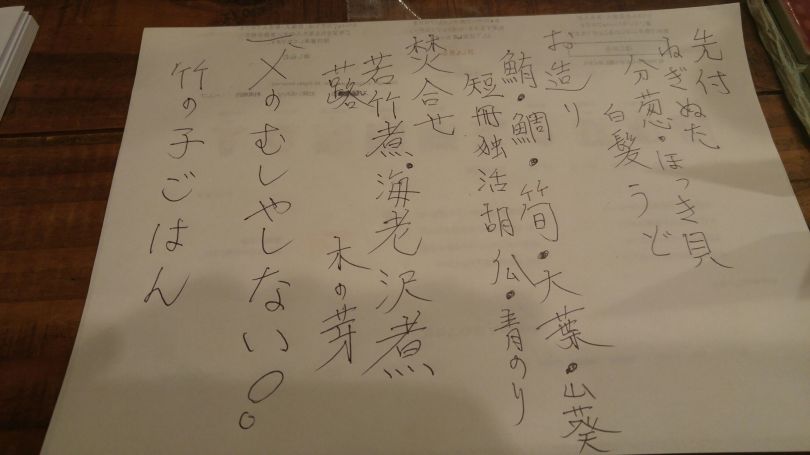 先付
ねぎぬた
分葱・ほっき貝
白髪うど
お造り
鮪・鯛・筍・大葉・山葵
短冊独活胡瓜・青のり
焚合せ
若竹煮・海老沢煮
蕗 木の芽
のむしやしない○。
竹の子ごはん